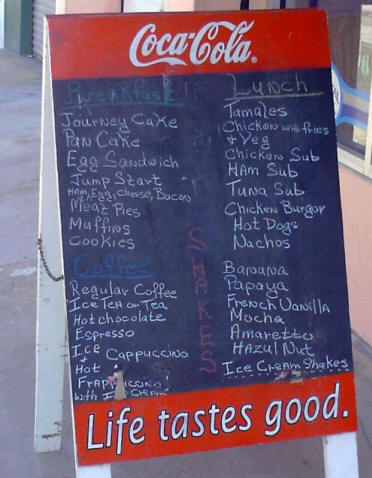 Coca-Cola
Breakfast
Journey Cake
Pan Cake
Egg Sandwich
Jump Start
Ham, Egg, Cheese, Bacon
Meat Pies
Muffins
Cookies
Coffee
Regular Coffee
Ice Tea or Tea
Hot chocolate
Espresso
Ice
&
Hot
Cappuccino
Frappuccino
with Ice Cream
Lunch
Tamales
Chicken with fries
+ Veg
Chicken Sub
Ham Sub
Tuna Sub
Chicken Burger
Hot Dogs
Nachos
SHAKES
Banana
Papaya
French Vanilla
Mocha
Amaretto
Hazul Nut
Ice Cream Shakes
Life tastes good.